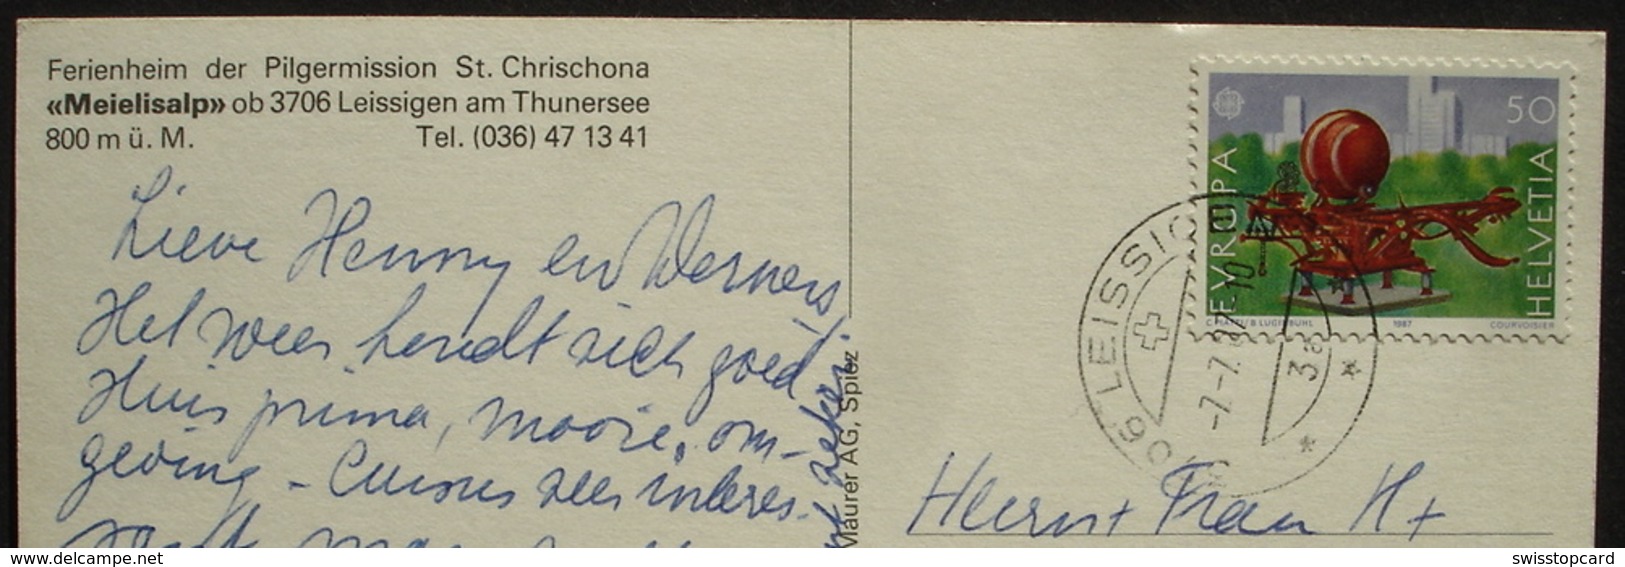 Ferienheim der Pilgermission St. Chrischona
«Meielisalp» ob 3706 Leissigen am Thunersee
800 m ü. M. Tel. (036) 47 13 41
Lieve Henny en Werner,
Het weer houdt zich goed.
Huis prima, mooie om-
geving - Cursus zeer interes-
sant
Maurer AG, Spiez
50
EVROPA
HELVETIA
1987
COURVOISIER
3706 LEISSIGEN
-7.-7.87-10
3a
Herr + Frau H +
www.delcampe.net
swisstopcard